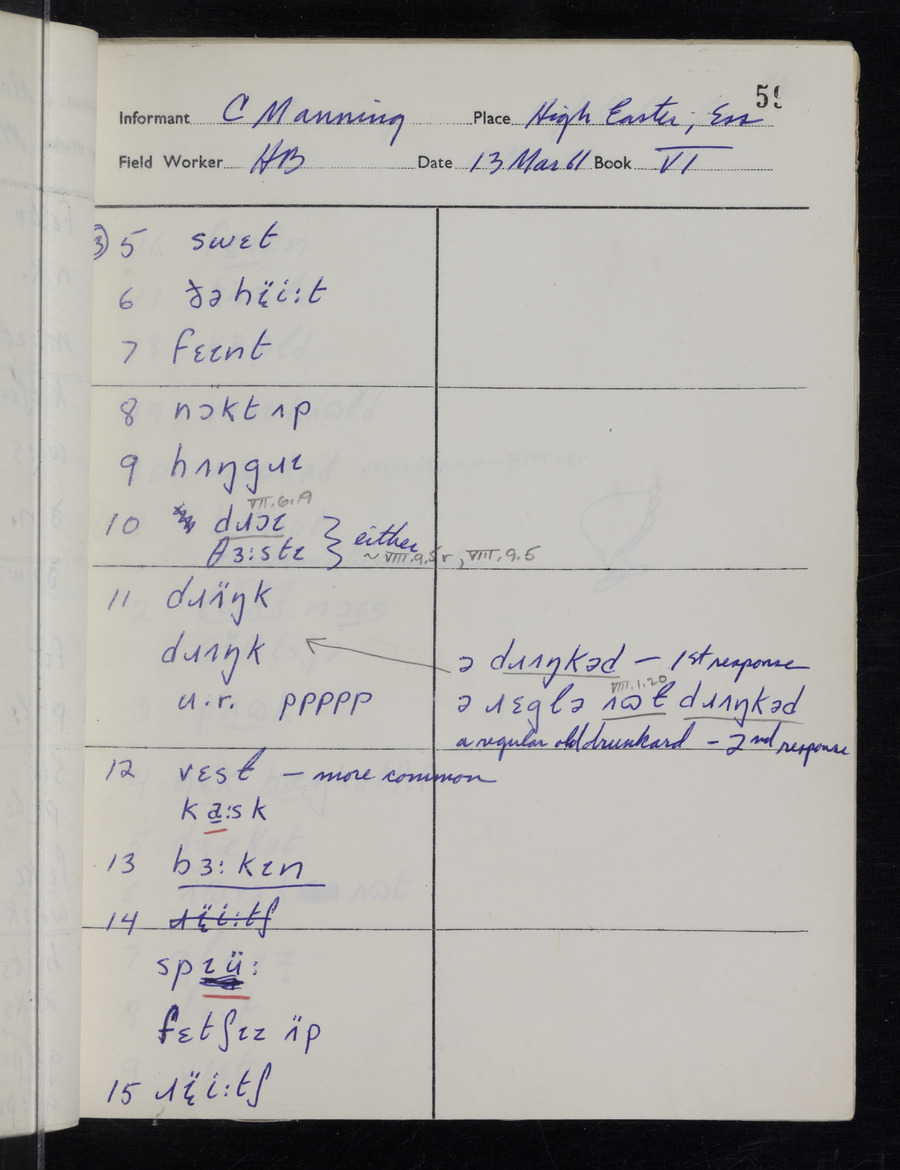 59
Informant C Manning Place High Easter, Ess
Field Worker HB Date 13 Mar 61 Book VI
③ 5 swɛt
6 ðə hï̞i:t
7 fɛɪnt
8 nɔktʌp
9 hʌŋgɹɪ
VII.6.19
10 dɹɔɪ
θɜ:stɪ } either
~ VIII.9.5r, VIII.9.5
11 dɹʌ̈ŋk
dɹʌŋk
ə dɹʌŋkəd — 1st response
u.r. ppppp
VIII.1.20
ə ɹɛglə ɹɷɫ dɹʌŋkəd
a regular old drunkard – 2nd response
12 vɛsɫ – more common
ka̠:sk
13 bɜ:kɪn
14 ɹï̞i:tʃ
spɪü:
fɛtʃɪɪ ʌ̈p
15 ɹï̞i:tʃ